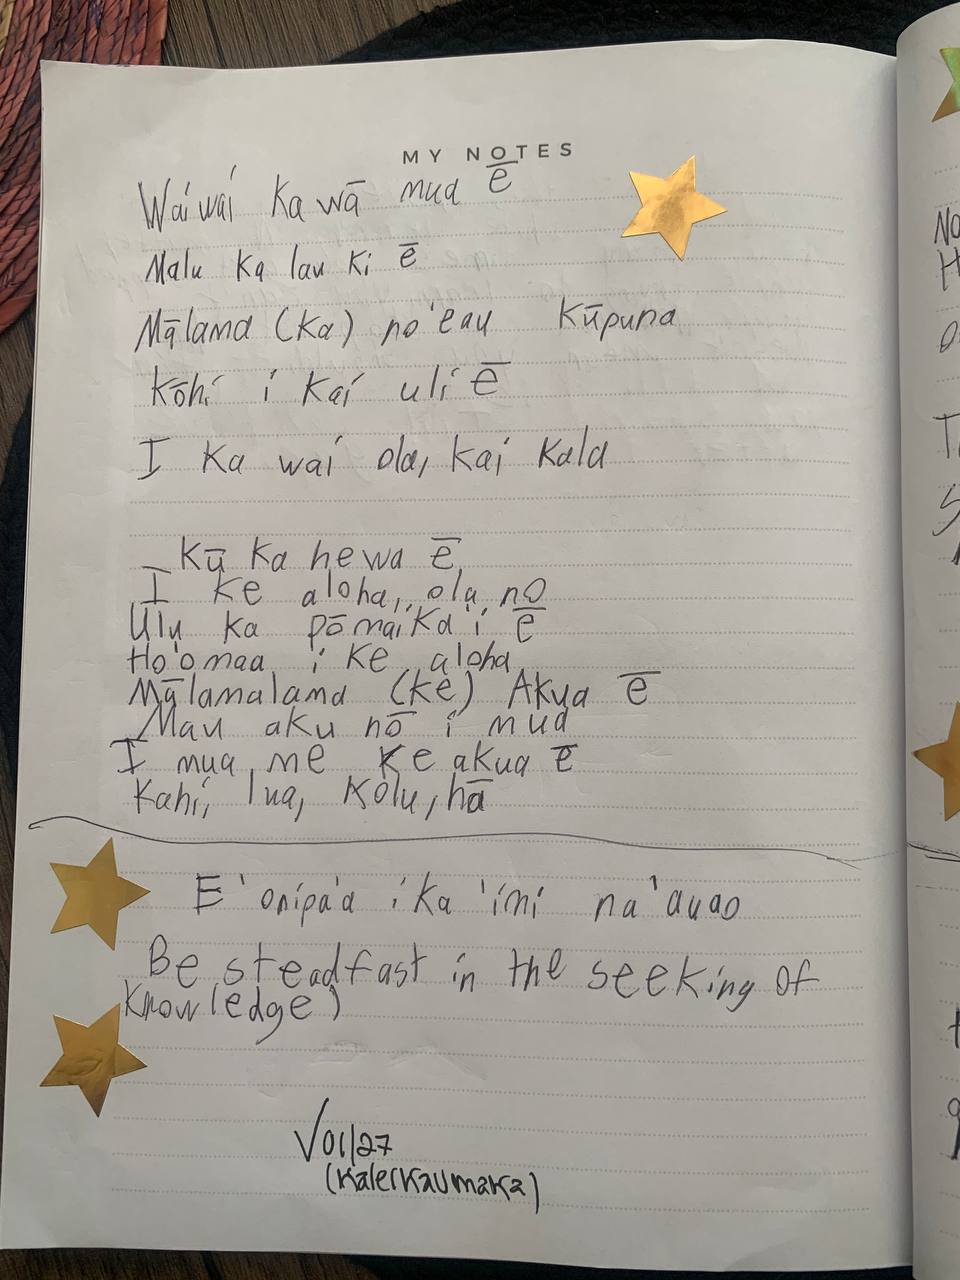 MY NOTES
Waiwai ka wā mua ē
Malu ka lau ki ē
Mālama (ka) no'eau kūpuna
Kōhi i kai uli ē
I ka wai ola, kai kala
Kū ka hewa ē
I ke aloha, ola nō
Ulu ka pōmaika'i ē
Ho'omaa i ke aloha
Mālamalama (ke) Akua ē
Mau aku nō i mua
I mua me ke akua ē
Kahi, lua, kolu, hā
E 'onipa'a i ka 'imi na'auao
Be steadfast in the seeking of
knowledge)
√01/27
(Kaleikaumaka)